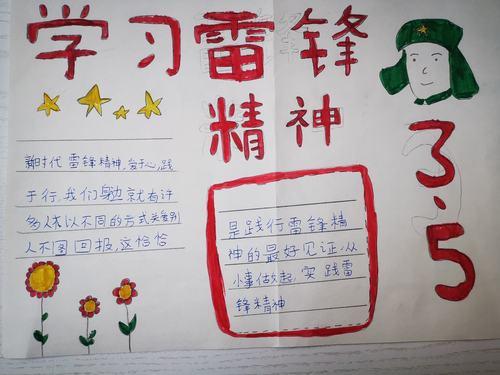 学习雷锋
精神
3.5
新时代雷锋精神,发于心,践
于行,我们身边就有许
多人以不同的方式关爱别
人不图回报,这恰恰
是践行雷锋精
神的最好见证.从
小事做起,实践雷
锋精神